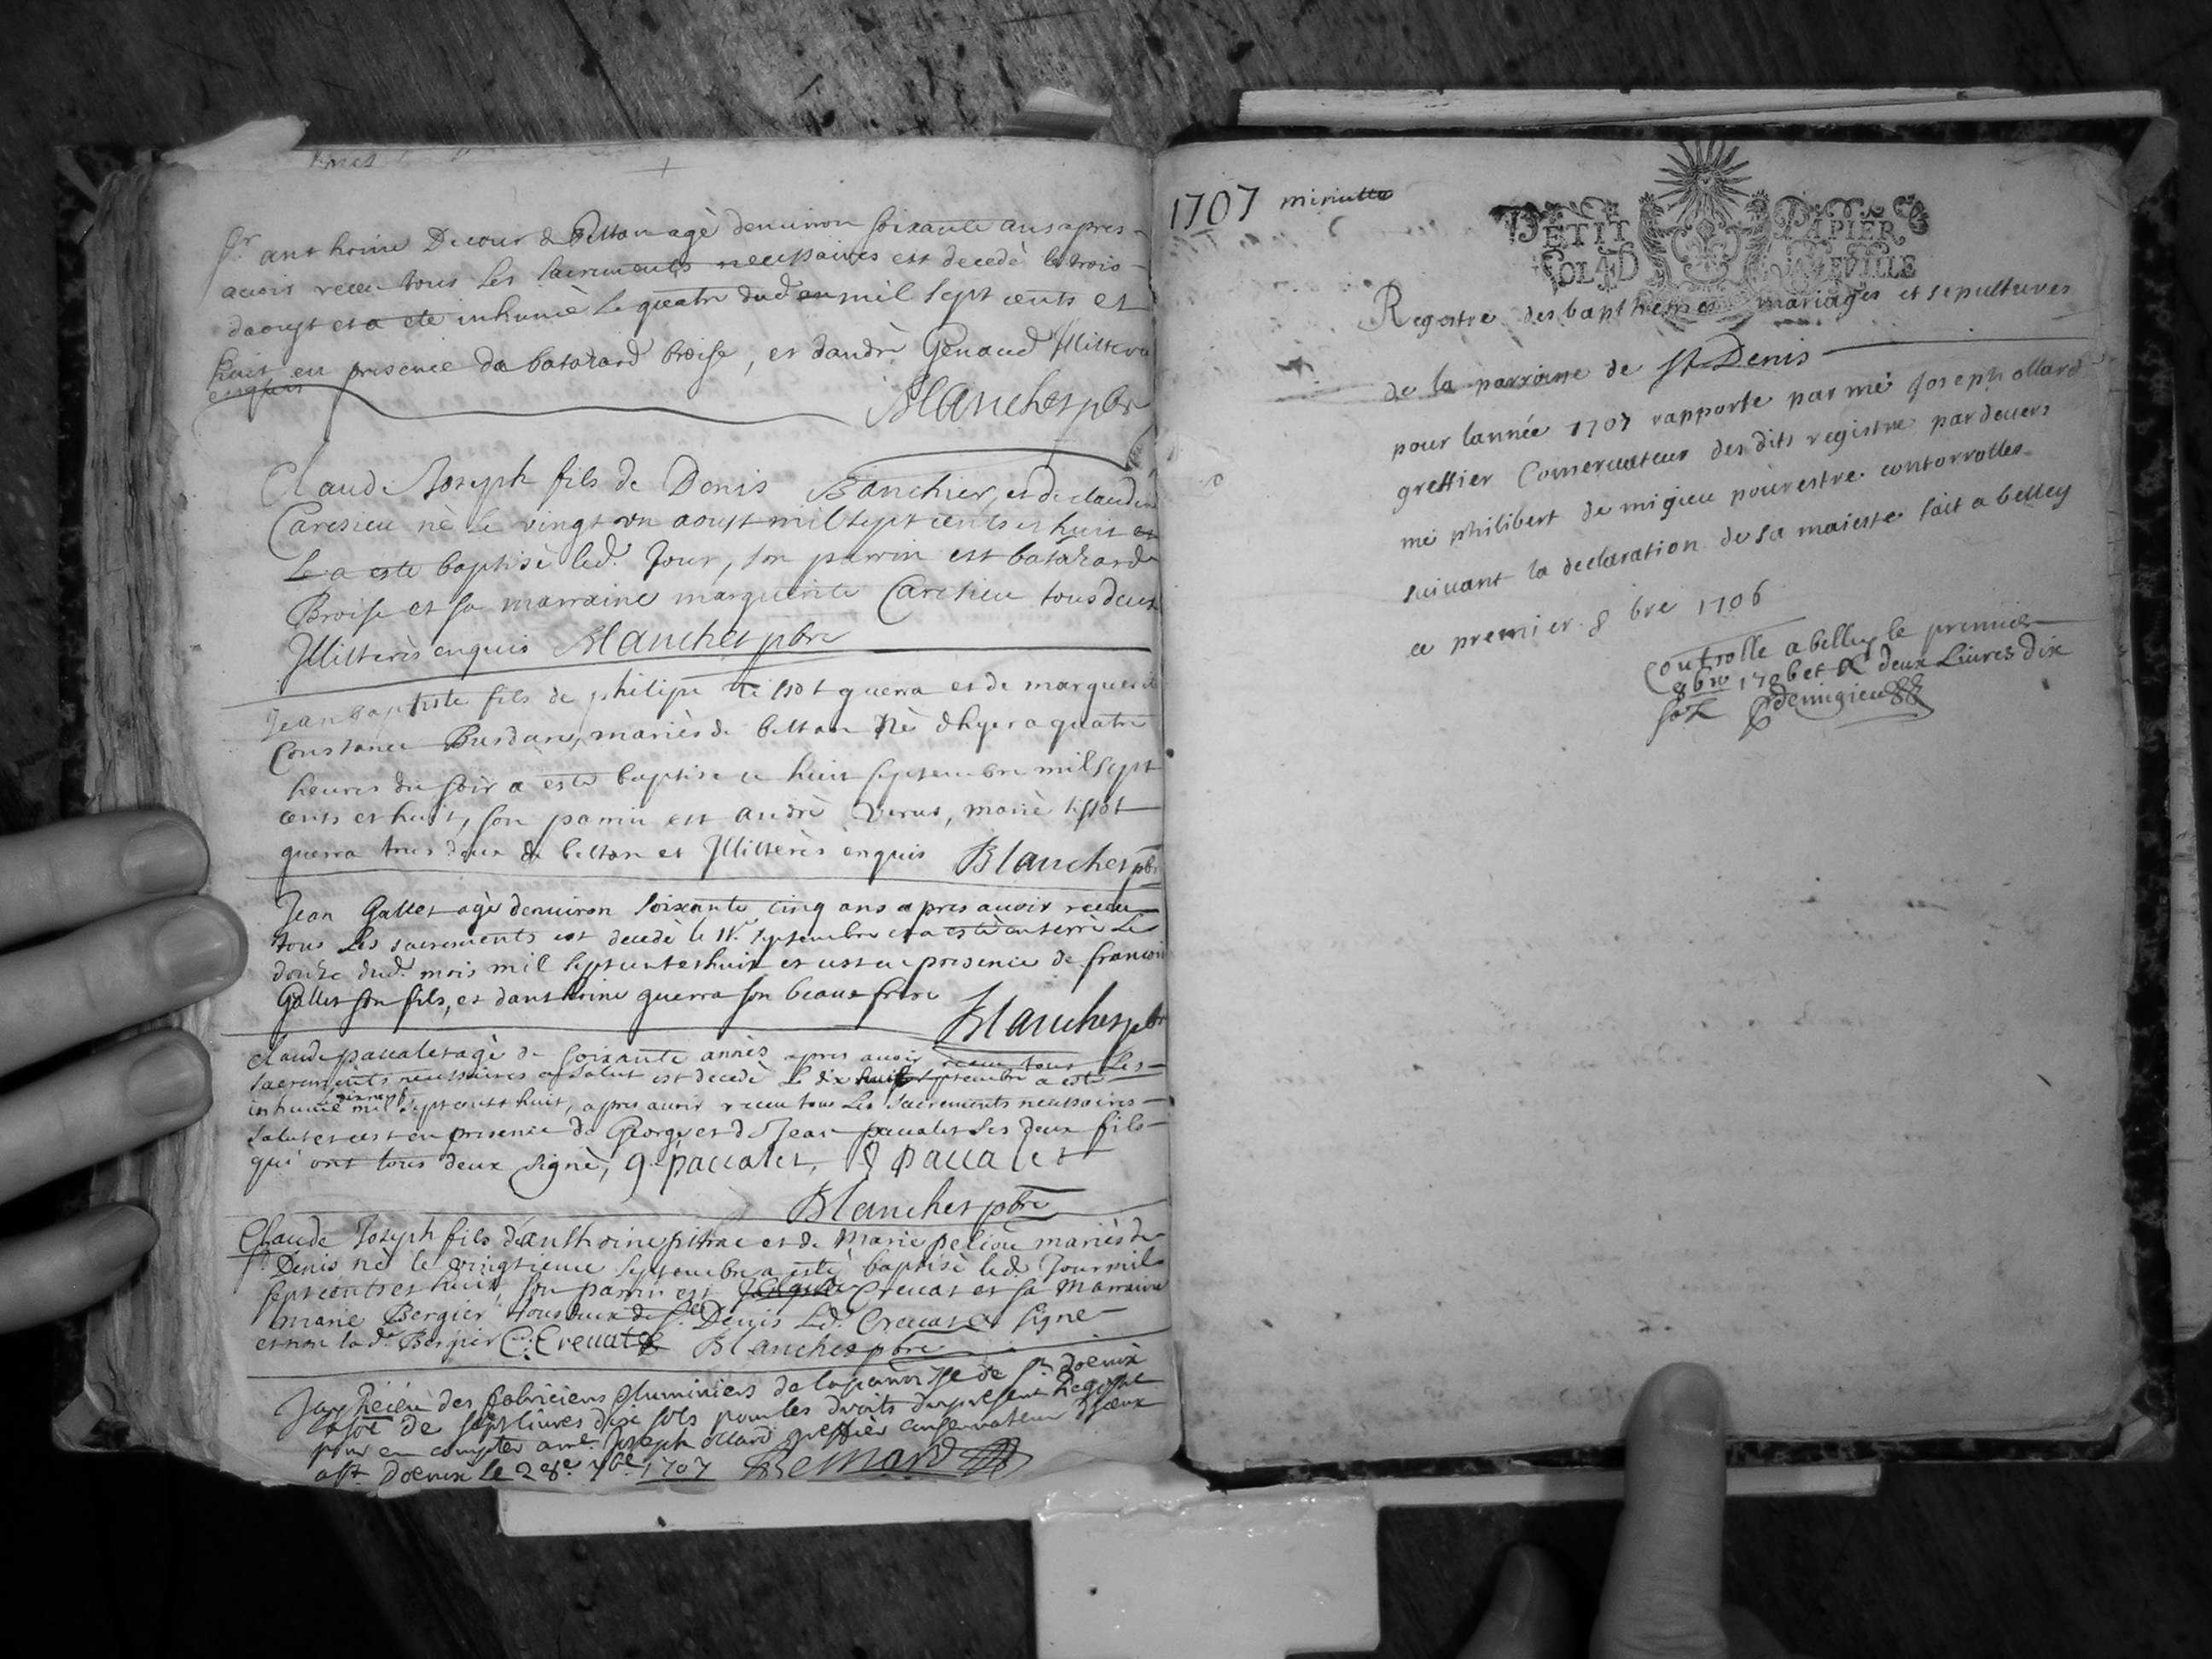 Sr. anthoine Decour de Betton agè denuiron soixante ans apres
auoir receu tous les sacrements necessaires est decedè le trois
daoust et a ete inhumè le quatre dud. mil sept cents et
huit en presence de batazard broise, et dandrè Genaud Illiterés
enquis
Blanchet pbre
Claude Joseph fils de Denis Banchier, et de claudine
Caresieu nè le vingt un aoust mil sept cents et huit et
a este baptisè led. Jour, son parrin est batazard
Broise et sa marraine marguerite Caresieu tous deux
Illiterès enquis Blanchet pbre
Jean baptiste fils de philipe tissot guerra et de marguerite
Constance Burdan, mariès de betton nè dhyer a quatre
heures du soir a este baptise ce huit septembre mil sept
cents et huit, son parrin est andrè Verus, mariè tissot
guerra tous deux de betton et Illiterès enquis Blanchet pbre
Jean Gallet agè denuiron soixante cinq ans apres auoir receu
tous les sacrements est decedè le 11e septembre et a estè enterrè le
douze dud. mois mil sept cents et huit et c'est en presence de francois
Gallet son fils, et danthoine guerra son beaufrere
Blanchet pbre
claude paccalet agè de soixante annès apres auoir receu tous Les
sacrements necessaires a salut est decedè le dix huit septembre a este
inhumè le dixneuf mil sept cents et huit, apres auoir receu tous Les sacrements necessaires
salut et c'est en presence de George et de Jean paccalet ses deux fils
qui ont tous deux signè, g. paccalet, J paccalet
Blanchet pbre
Claude Joseph fils danthoine pithac et de Marie peliou mariès de
st Denis nè le vingtieme septembre a estè baptisè led. Jour mil
sept cents et huit, son parrin est Claude Creuat et sa Marraine
marie Bergier tous deux de st Denis Led. Creuat a signe
et non lad. Bergier C. Creuat Blanchet pbre
Jay Receu des fabriciens & luminiers de la parroisse de st. doenix
la soe de sept liures dix sols pour les droits du present Registre
pour en compter a me. Joseph ollard greffier conseruateur diceux
a st. doenix le 28e. 7be. 1707 Bernard
1707 minutte
PETIT PAPIER
SOL 4 D
Regestre des bapthemes mariages et sepultures
de la parroisse de St Denis
pour lannée 1707 rapporte par me Joseph ollard
greffier Conseruateur des dits registre pardeuers
me philibert de migieu pour estre contorrolles
suiuant la declaration de sa maieste fait a belley
ce premier 8 bre 1706
Controlle a belley le premier
8bre 1706 et R deux Liures dix
solz Demigieu